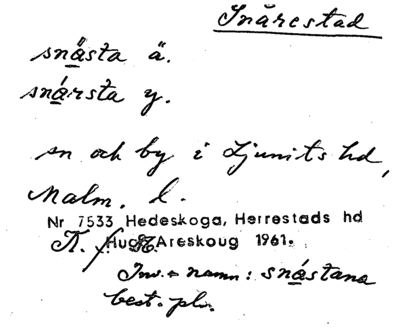 Snårestad
snåsta ä.
snársta y.
sn och by i Ljunits hd,
Malm. l.
Nr 7533 Hedeskoga, Herrestads hd
Hug Areskoug 1961.
Inv.-namn: snåstana
best. plu.